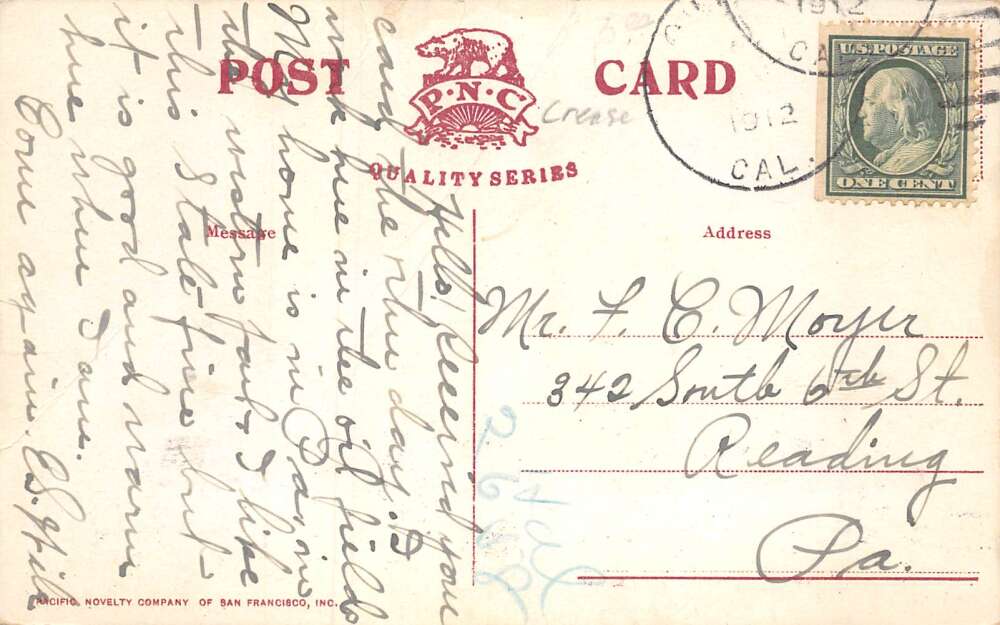 POST CARD
P·N·C
QUALITY SERIES
Crease
1912
CAL.
1912
CAL.
U.S. POSTAGE
ONE CENT
Message
Address
Mr. F. C. Moyer
342 South 6th St.
Reading
Pa.
Hello, Received your
card the other day. I
work here in the oil fields
My home is in
the western part. I like
this State fine but
it is good and warm
here where I am.
Come again. E.S. Hill
PACIFIC NOVELTY COMPANY OF SAN FRANCISCO, INC.